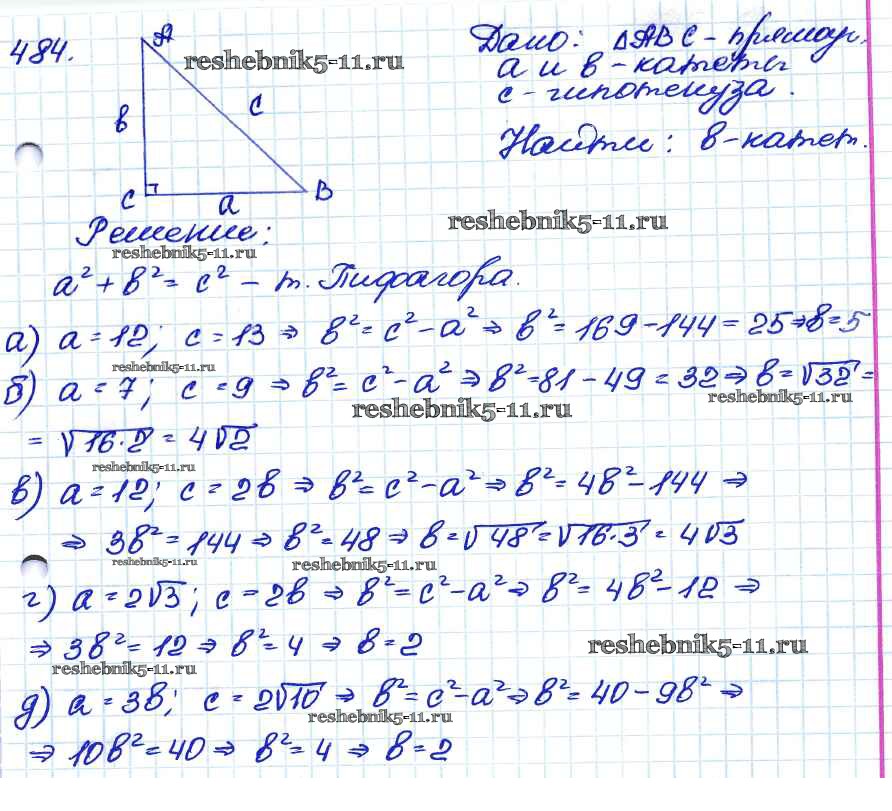 484.
A
b
c
C
a
B
reshebnik5-11.ru
Дано: ΔABC - прямоуг.
a и b - катеты
c - гипотенуза.
Найти: b - катет.
reshebnik5-11.ru
Решение:
reshebnik5-11.ru
a² + b² = c² - т. Пифагора.
а) a = 12; c = 13 ⇒ b² = c² - a² ⇒ b² = 169 - 144 = 25 ⇒ b = 5
reshebnik5-11.ru
б) a = 7; c = 9 ⇒ b² = c² - a² ⇒ b² = 81 - 49 = 32 ⇒ b = √32 =
reshebnik5-11.ru
reshebnik5-11.ru
= √16·2 = 4√2
reshebnik5-11.ru
в) a = 12; c = 2b ⇒ b² = c² - a² ⇒ b² = 4b² - 144 ⇒
⇒ 3b² = 144 ⇒ b² = 48 ⇒ b = √48 = √16·3 = 4√3
reshebnik5-11.ru
reshebnik5-11.ru
г) a = 2√3; c = 2b ⇒ b² = c² - a² ⇒ b² = 4b² - 12 ⇒
⇒ 3b² = 12 ⇒ b² = 4 ⇒ b = 2
reshebnik5-11.ru
reshebnik5-11.ru
д) a = 3b; c = 2√10 ⇒ b² = c² - a² ⇒ b² = 40 - 9b² ⇒
reshebnik5-11.ru
⇒ 10b² = 40 ⇒ b² = 4 ⇒ b = 2